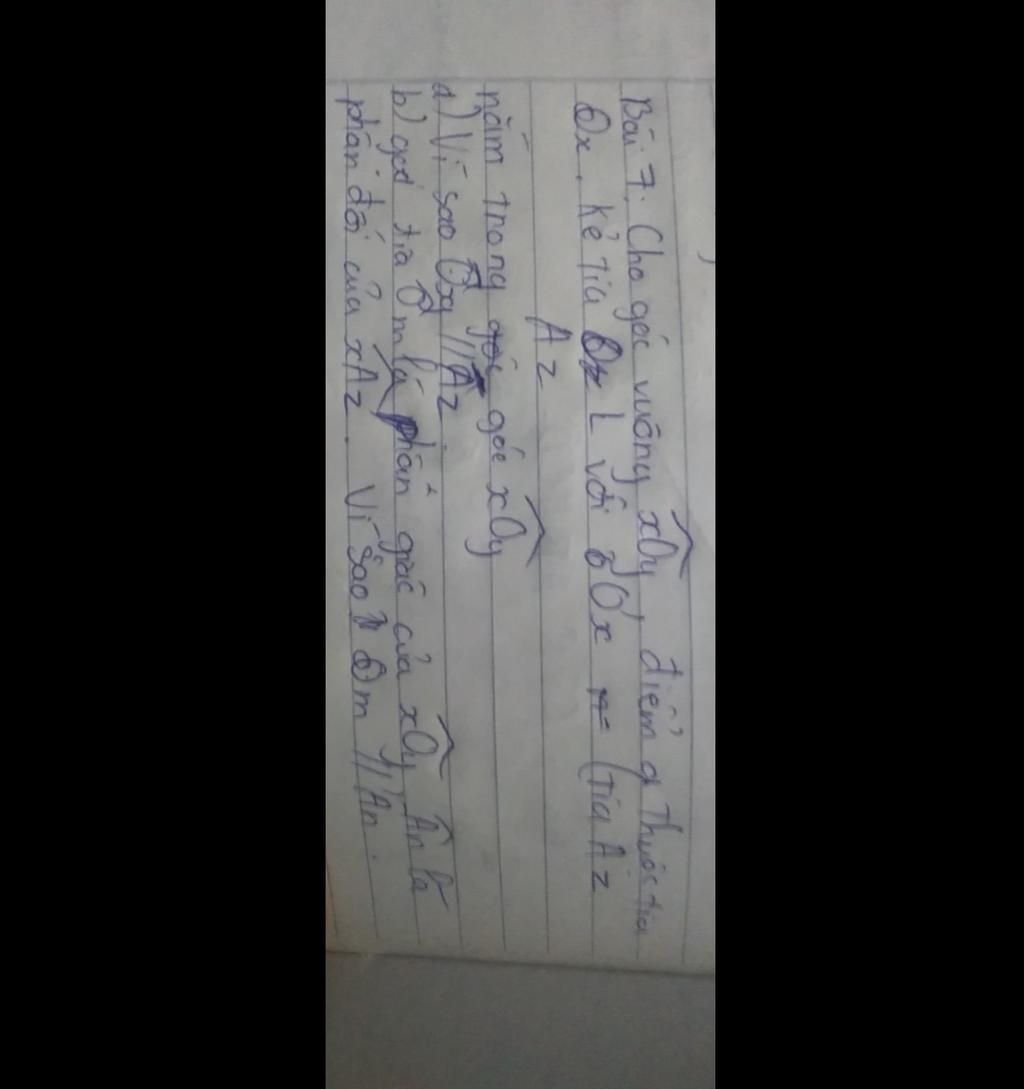 Bài 7: Cho góc vuông xOy, điểm a thuộc tia
Ox. Kẻ tia ⊥ với Ox (tia Az
Az
nằm trong góc xOy
a) Vì sao Oy // Az.
b) gọi tia Om là phân giác của xOy, An là
phân đối của xAz. Vì sao Om // An.